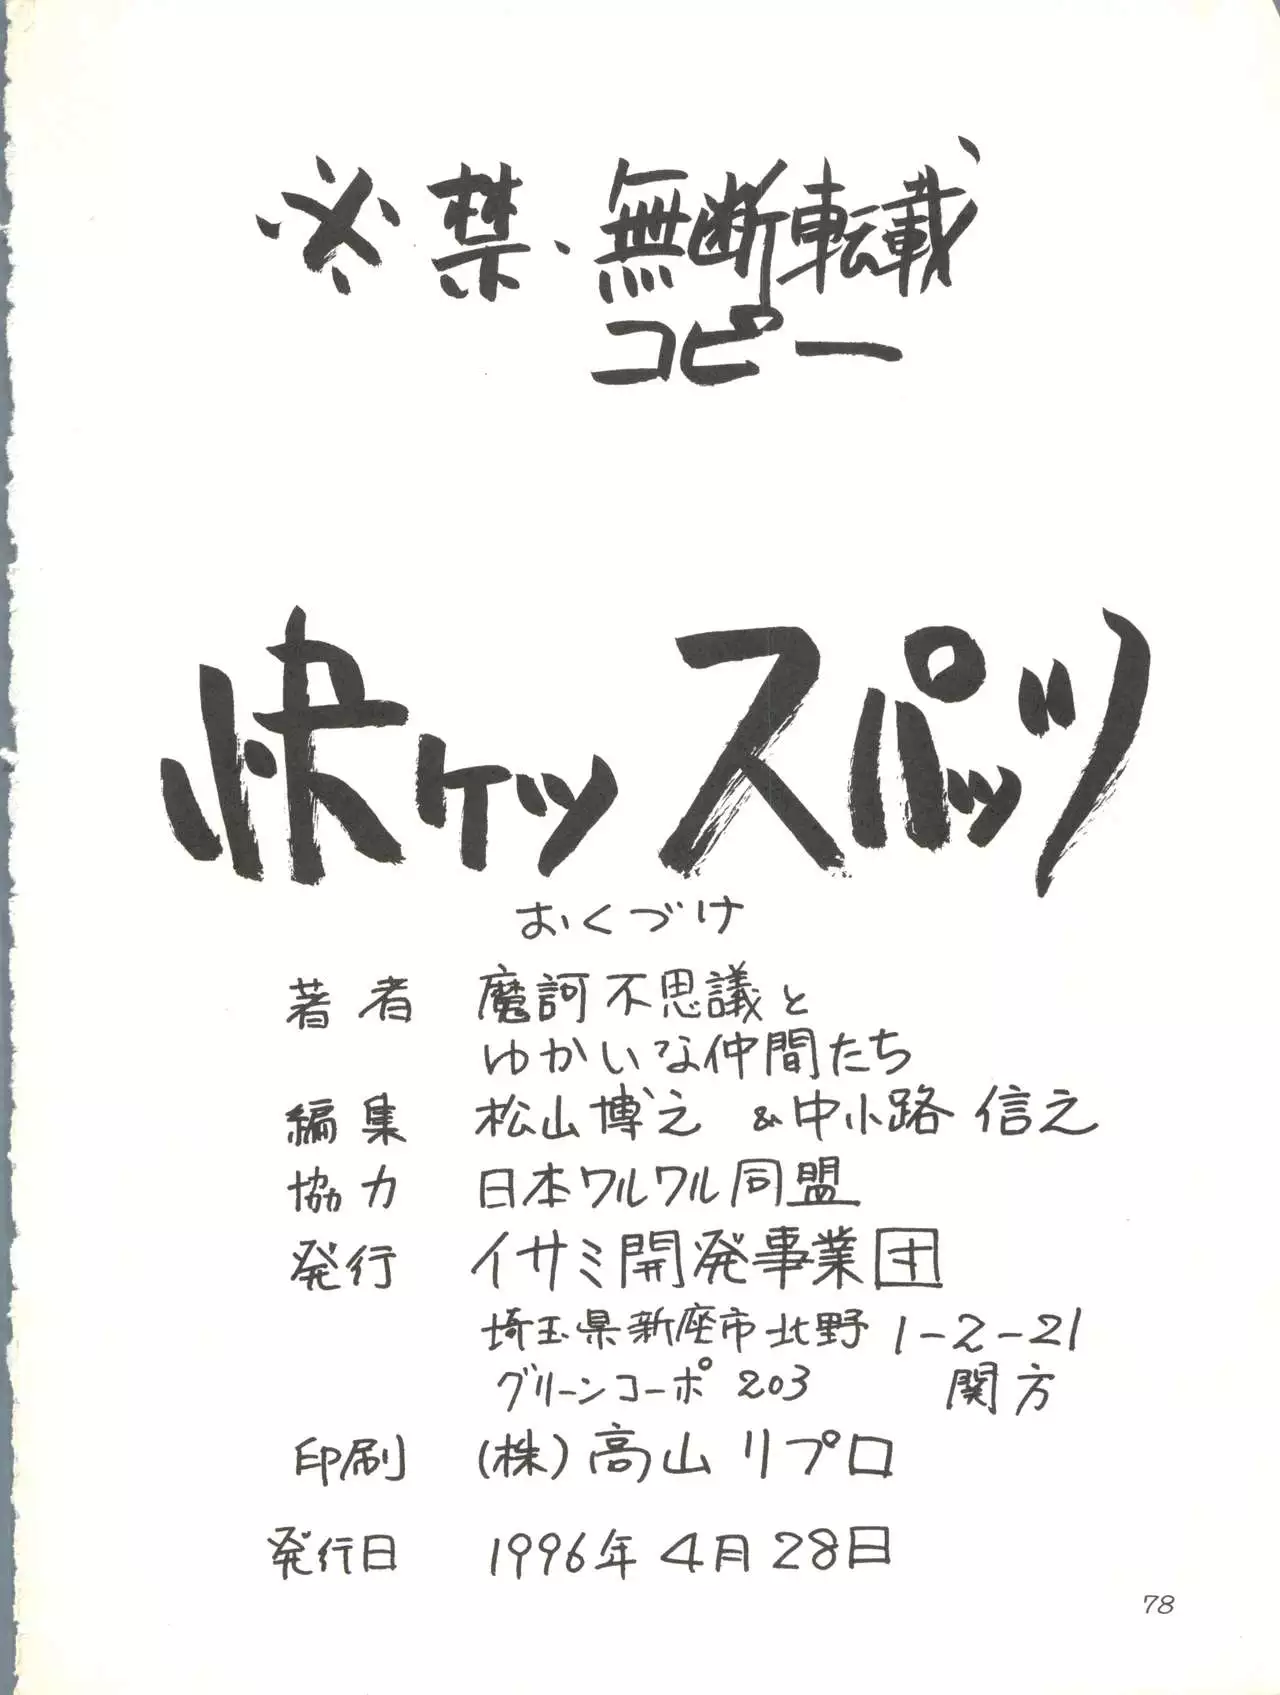 ※禁・無断転載
コピー
快ケッ スパッツ
おくづけ
著者 魔訶不思議と
ゆかいな仲間たち
編集 松山博之 &中小路 信之
協力 日本ワルワル同盟
発行 イサミ開発事業団
埼玉県新座市北野 1-2-21
グリーンコーポ 203 関方
印刷 (株)高山リプロ
発行日 1996年4月28日
78